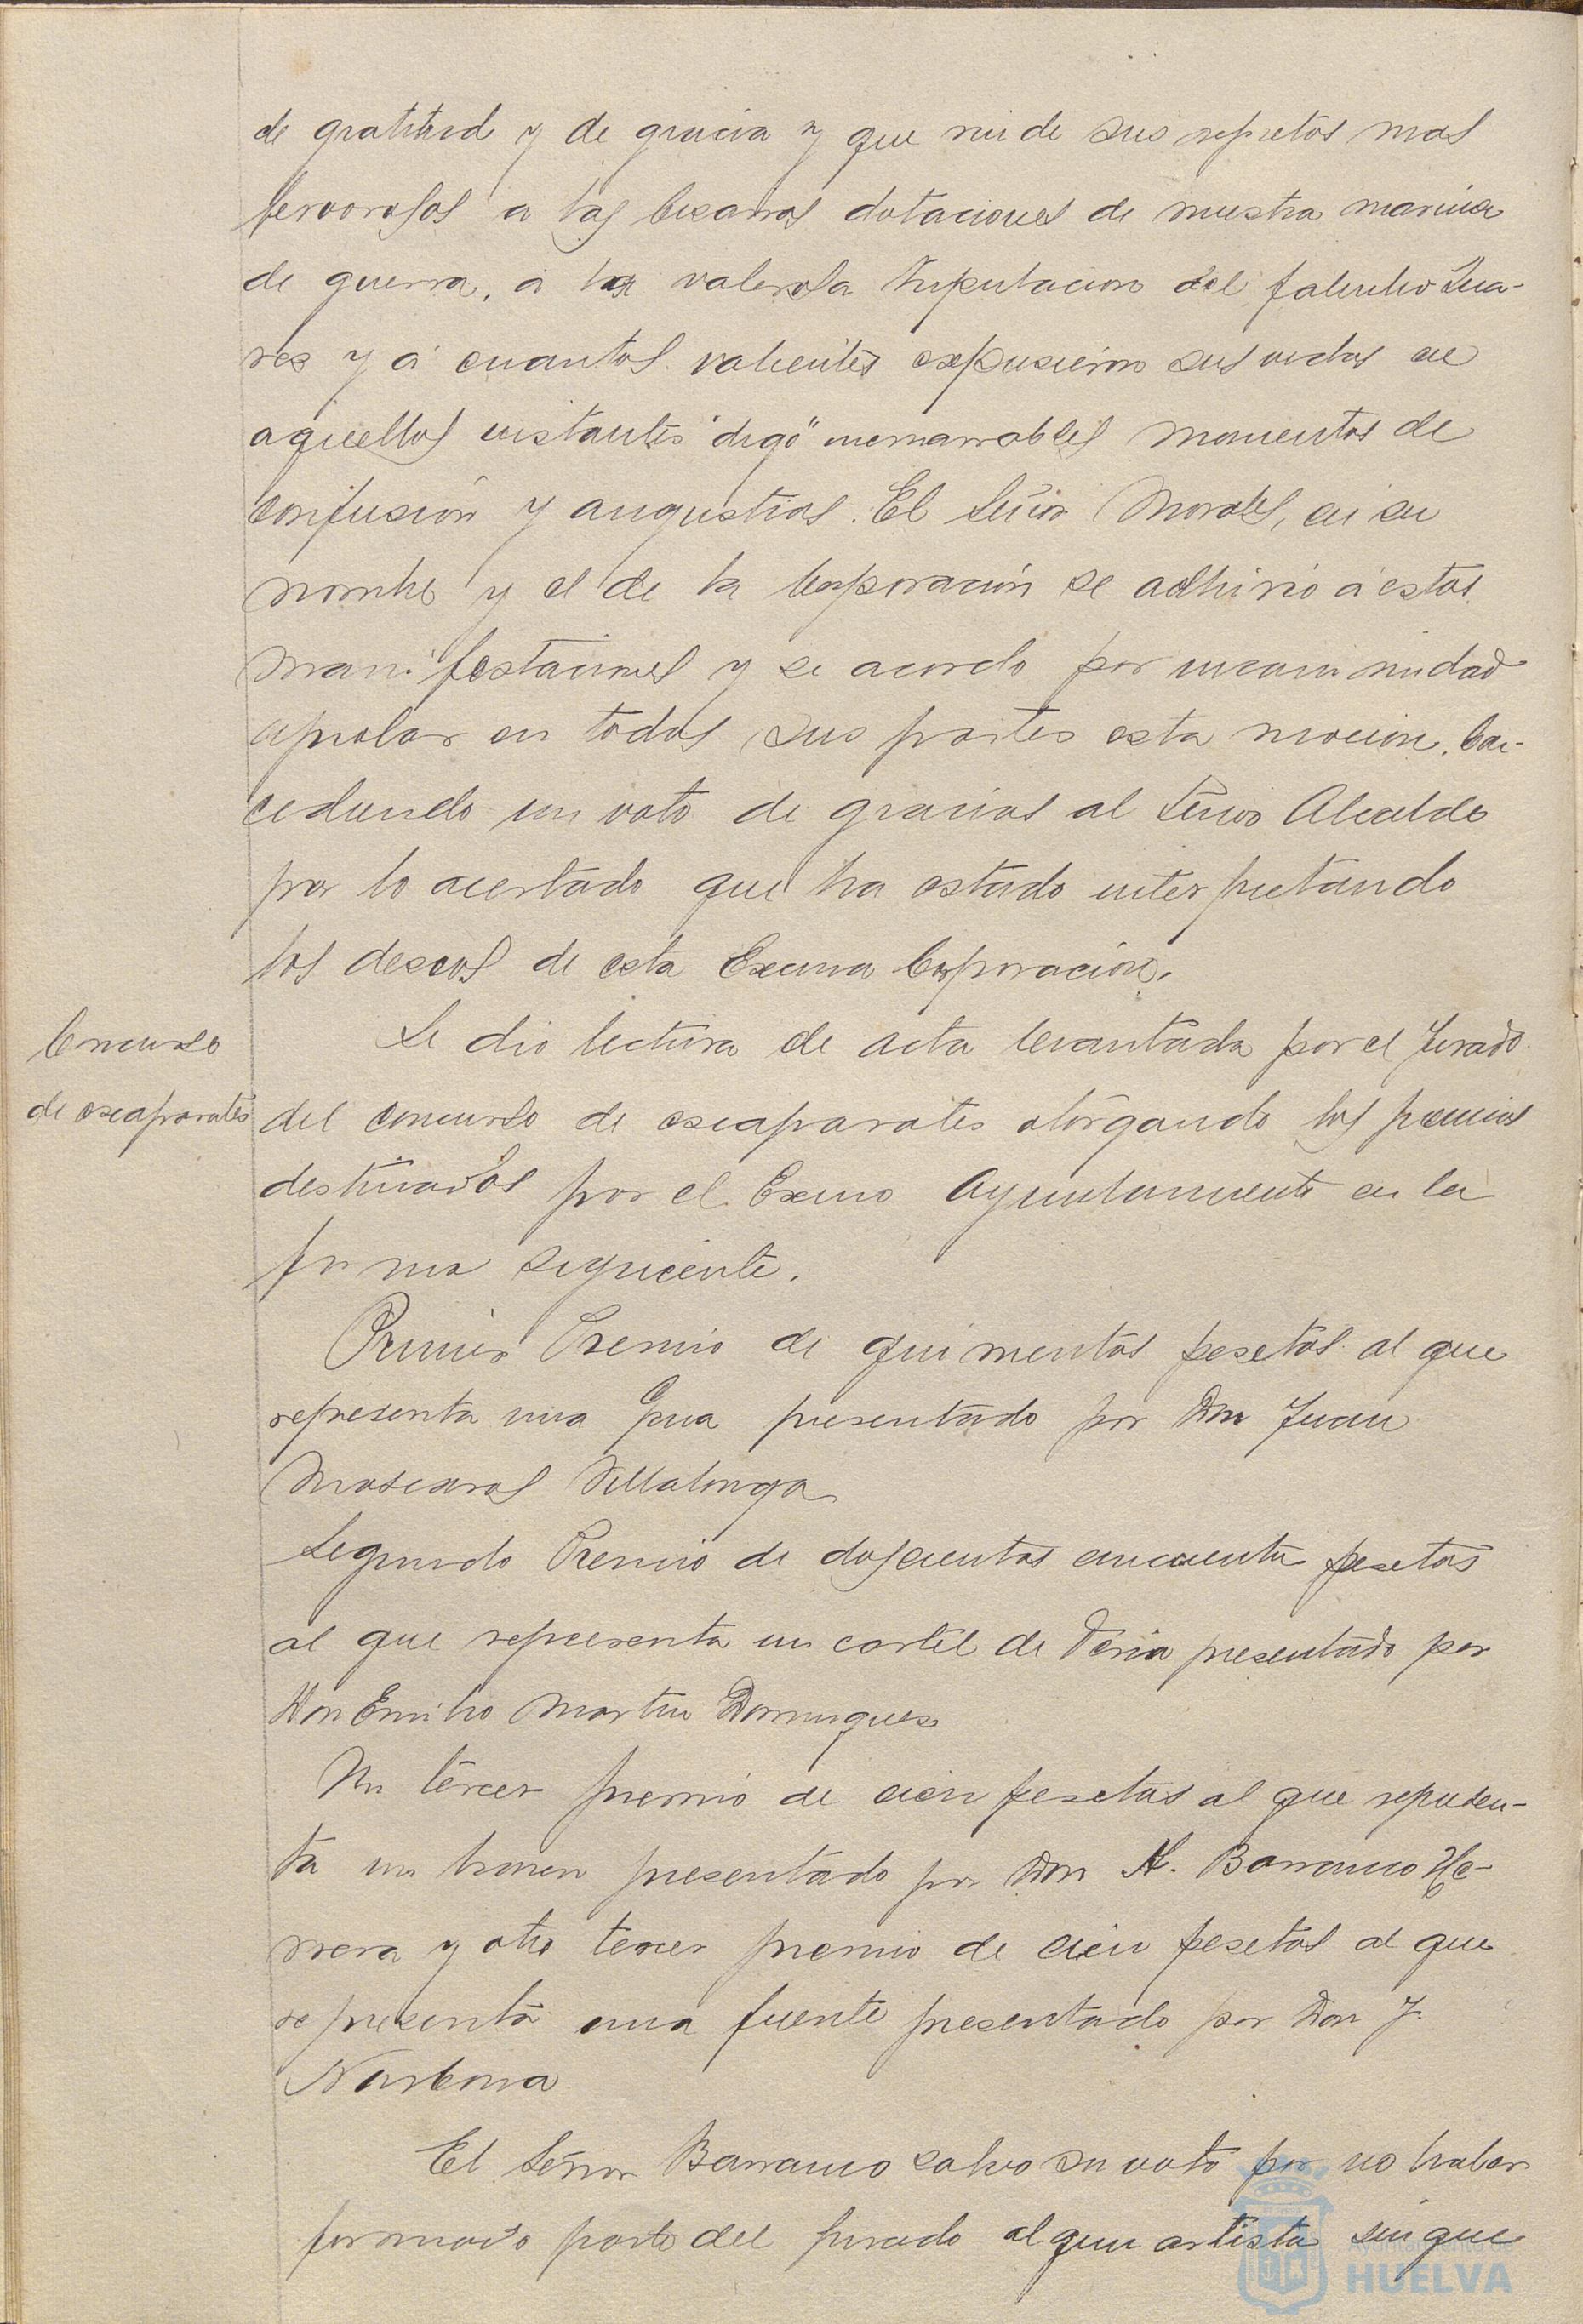 de gratitud y de gracia y que rinde sus respetos mas
fervorosos a las bizarras dotaciones de nuestra marina
de guerra, a la valerosa tripulacion del falucho Sua-
res y á cuantos valientes expusieron sus vidas en
aquellos instantes "digo" inenarrables momentos de
confusión y angustias. El Señor Morales, en su
nombre y el de la Corporación se adhirió á estas
manifestaciones y se acordo por unanimidad
aprobar en todas sus partes esta mocion, con-
cediendo un voto de gracias al Señor Alcalde
por lo acertado que ha estado interpretando
los deseos de esta Excma Corporación.
Concurso
de escaparates
Se dio lectura de acta levantada por el Jurado
del concurso de escaparates otorgando los premios
destinados por el Excmo Ayuntamiento en la
forma siguiente.
Primer Premio de quinientas pesetas al que
representa una presentado por Don Juan
Mascaros Villalonga
Segundo Premio de doscientas cincuenta pesetas
al que representa un cartel de Feria presentado por
Don Emilio Martin Dominguez
Un tercer premio de cien pesetas al que represen-
ta un presentado por Don Barranco He-
rrera y otro tercer premio de cien pesetas al que
representa una fuente presentado por Don J.
Narbona
El Señor Barranco salvo su voto por no haber
formado parte del jurado algun artista sin que
AYUNTAMIENTO DE
HUELVA